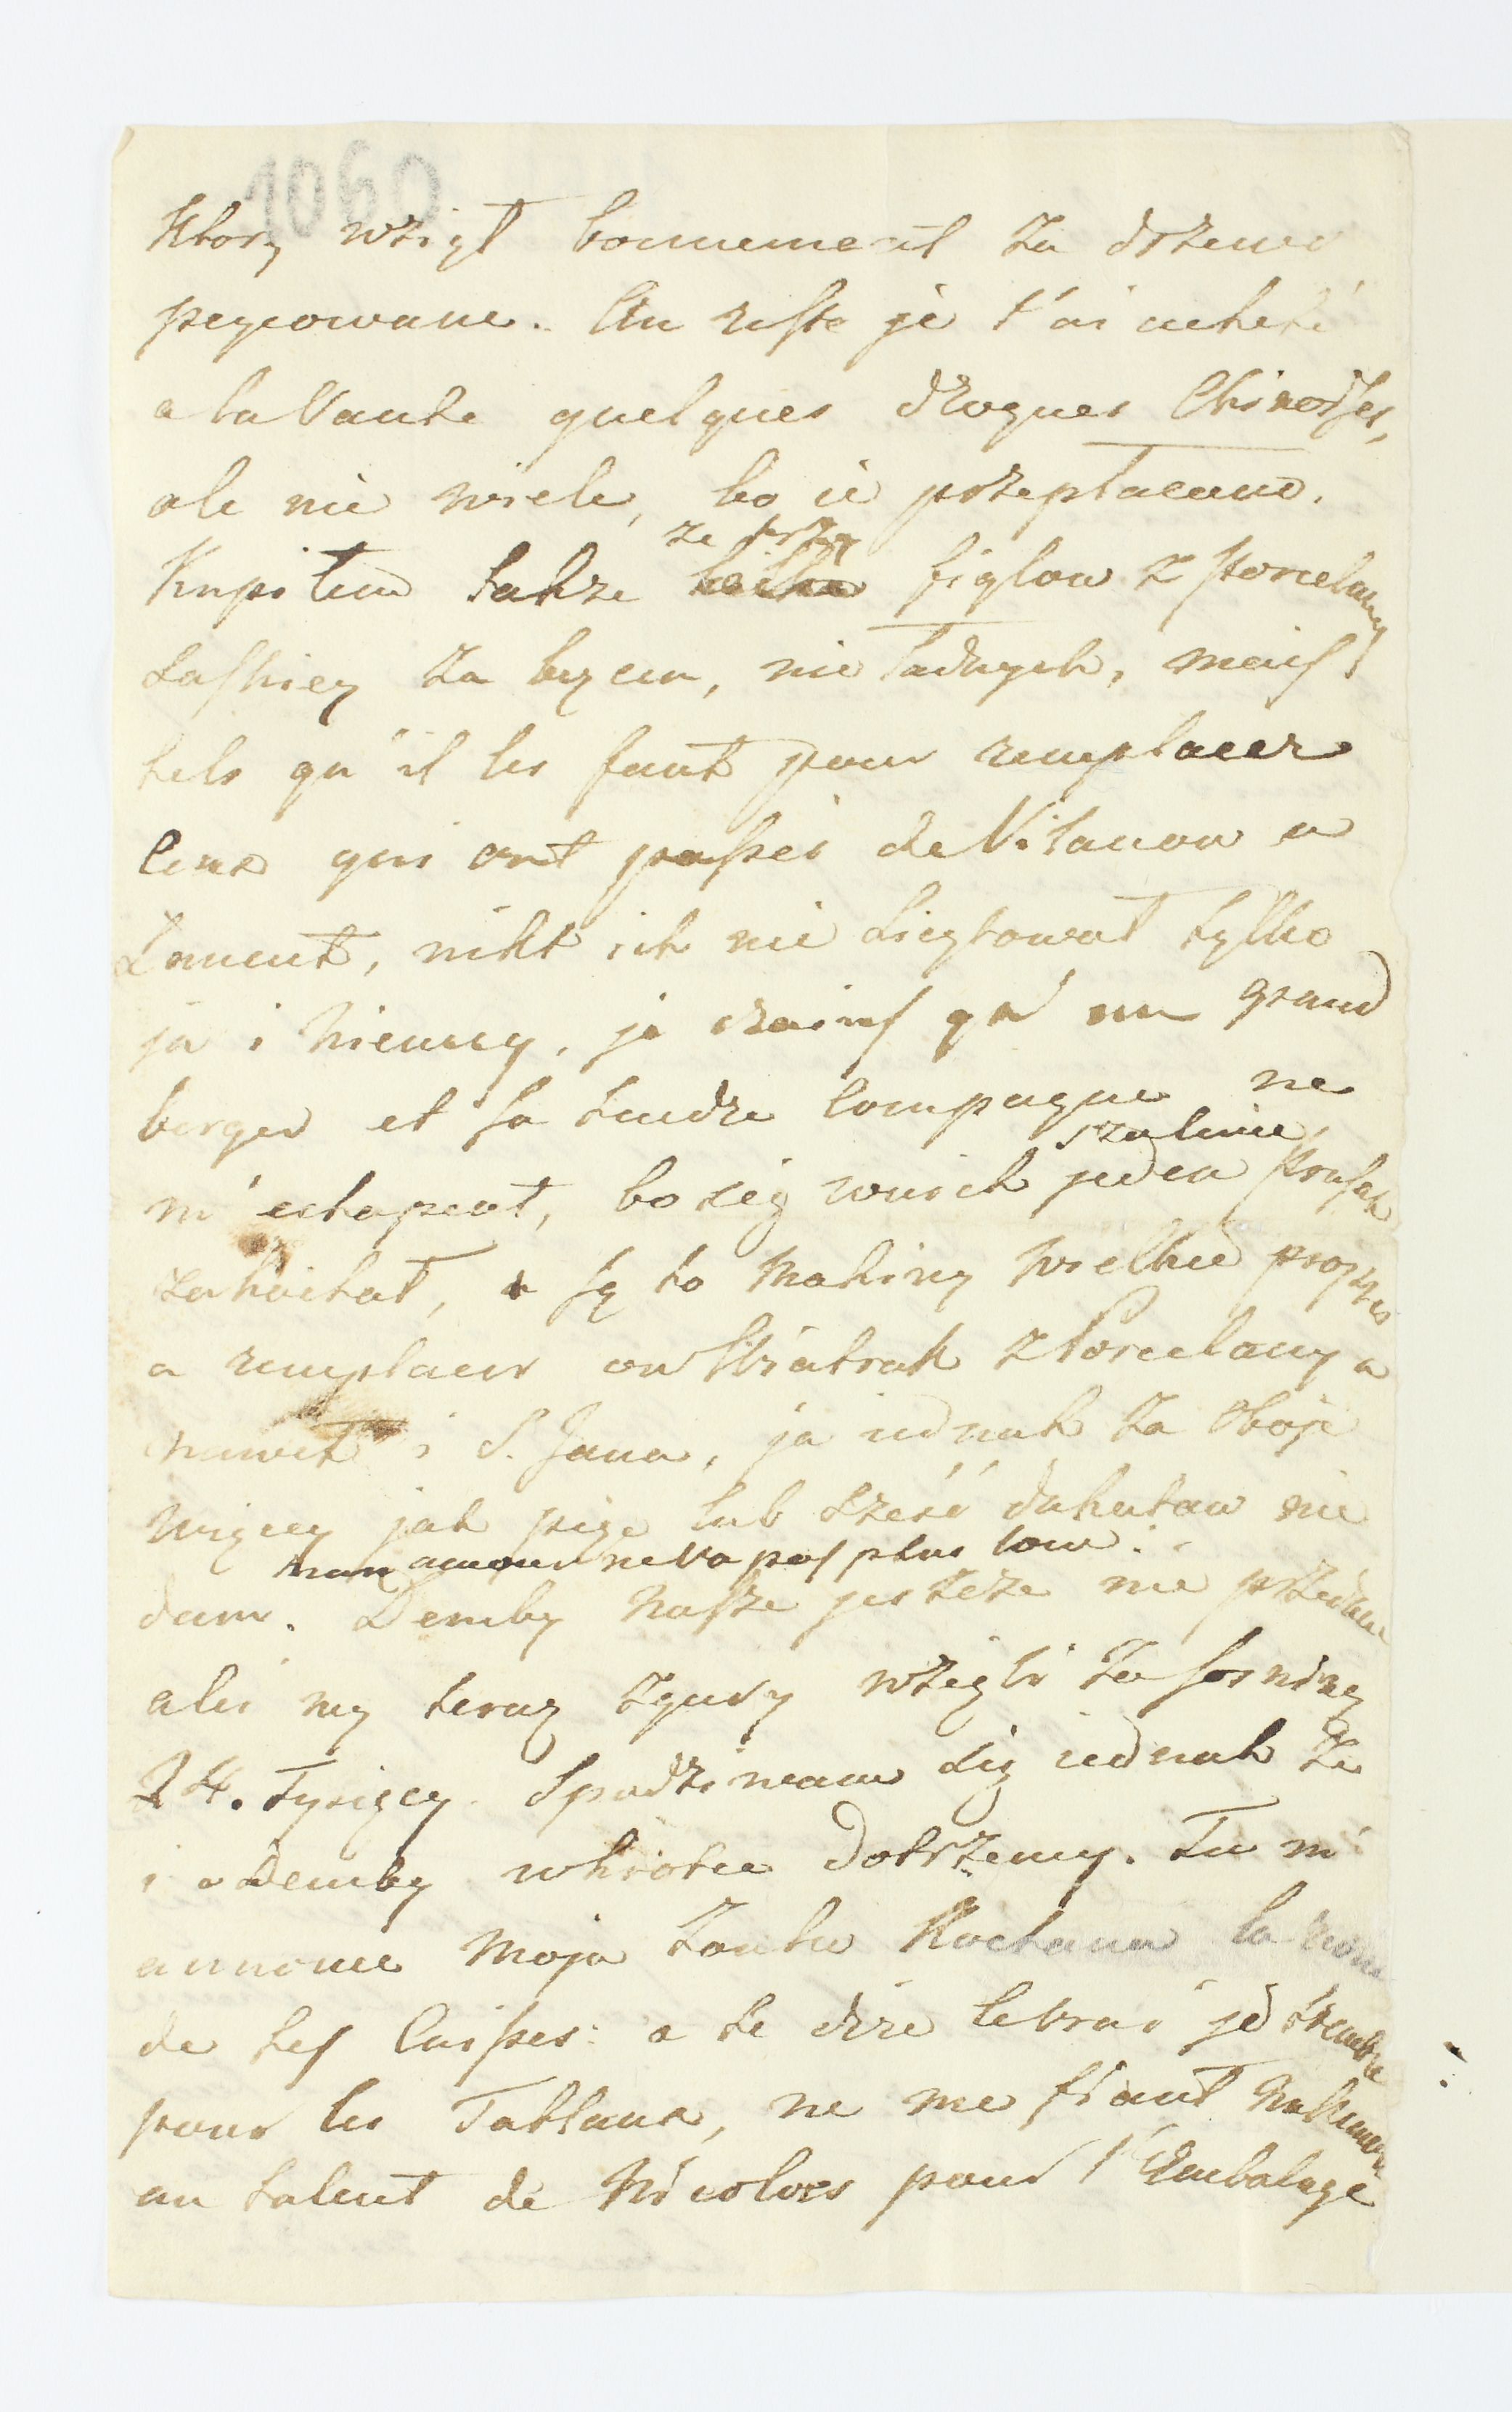 1060
Ktory wziął bonnement za drzewo
pręcowane. Au reste je t'ai acheté
a la Vante quelques drogues Chinoises,
ale nie wiele, bo ie przepłacano.
Kupiłem także ze trzy figlow z Porcelany
Saskiey za bezcen, nie ładnych, mais
tels qu'il les faut pour remplacer
Ceux qui ont passés de Vilanow a
Łancut, nikt ich nie licytował tylko
ja i Niemcy, je crains qu'un grand
berger et sa tendre Compagne ne
m'echapent, bo się wnich jeden Prusak szalenie
zakochał, są to Machiny wielkie propres
a remplacer ow Wiatrak z Porcelany a
nawet i S. Jana, ja iednak za oboje
więcey jak pięc lub sześć dukatow nie
dam. mon amour ne va pas plus loin.
Demby nasze jeszcze nie przedane
aleśmy teraz zgury wzięli za sosninę
24. Tysięcy. Spodziewam się iednak że
i o Demby wkrotce dotrzemy. Tu m'
annonce moja Żonko Kochana
de tes Caisses: a te dire le vrai je tremble
pour les Tableaux, ne me fiant nullement
au talent de Nicolas pour l'Embalage